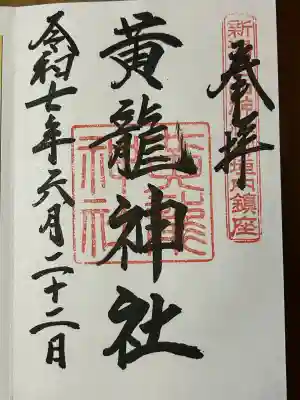 奉拝
黄龍神社
令和七年六月二十二日
黄龍
神社
鎮座